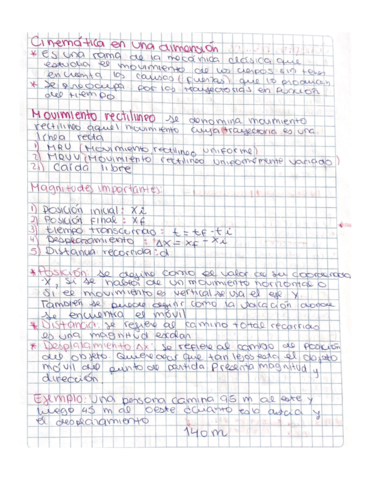 Cinemática en una dimensión
* es una rama de la mecánica clásica que
estudia el movimiento de los cuerpos sin tener
en cuenta las causas (fuerzas) que lo producen
* Se preocupa por las trayectorias en función
del tiempo
Movimiento rectilíneo se denomina movimiento
rectilíneo aquel movimiento cuya trayectoria es una
línea recta
1) MRU (Movimiento rectilíneo uniforme)
2) MRUV (Movimiento rectilíneo uniformemente variado)
2.1) Caída libre
Magnitudes importantes
1) Posición inicial: Xi
2) Posición Final: Xf
3) tiempo transcurrido: t = tf - ti
4) Desplazamiento: ΔX = Xf - Xi
5) Distancia recorrida: d
* Posición se define como el valor de su coordenada
X, si se habla de un movimiento horizontal o
si el movimiento es vertical se usa el eje Y
También se puede definir como la ubicación donde
se encuentra el móvil
* Distancia: se refiere al camino total recorrido
es una magnitud escalar
* Desplazamiento Δx: se refiere al cambio de posición
del objeto. Quiere decir que tan lejos está el objeto
móvil del punto de partida Presenta magnitud y
dirección.
Ejemplo: Una persona camina 95 m al este y
luego 45 m al oeste ¿cuánto es la distancia y
el desplazamiento
140m